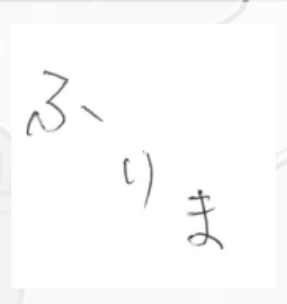 ふりま